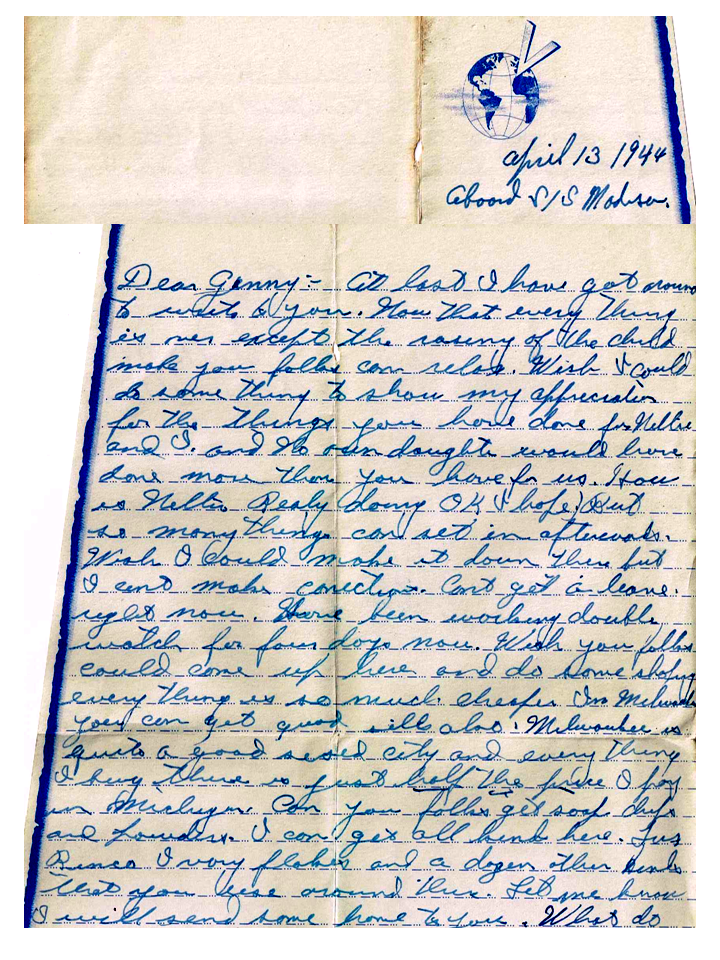 April 13 1944
Aboard S/S Madison.
Dear Genny:- At last I have got around
to write to you. Now that every thing
is over except the raseing of the child
make you folks can relax. Wish I could
do some thing to show my appreciation
for the things you have done for Nettie
and I. and no own daughter would have
done more than you have for us. How
is Nettie Realy doing OK I hope. But
so many things can set in afterwads.
Wish I could make it down there but
I cant make conection. Cant get a leave.
right now. Have been working double
watch for four days now. Wish you folks
could come up here and do some shoping
every thing is so much cheaper In Milwauk
you can get good silk also. Milwaukee is
quite a good sised city and every thing
I buy there is just half the price I pay
in Michigan. Can you folks get soap chips
and Powders. I can get all kind here. Lux
Rinso Ivory flakes and a dozen other kinds
that you use around there. Let me know
I will send some home to you. What do